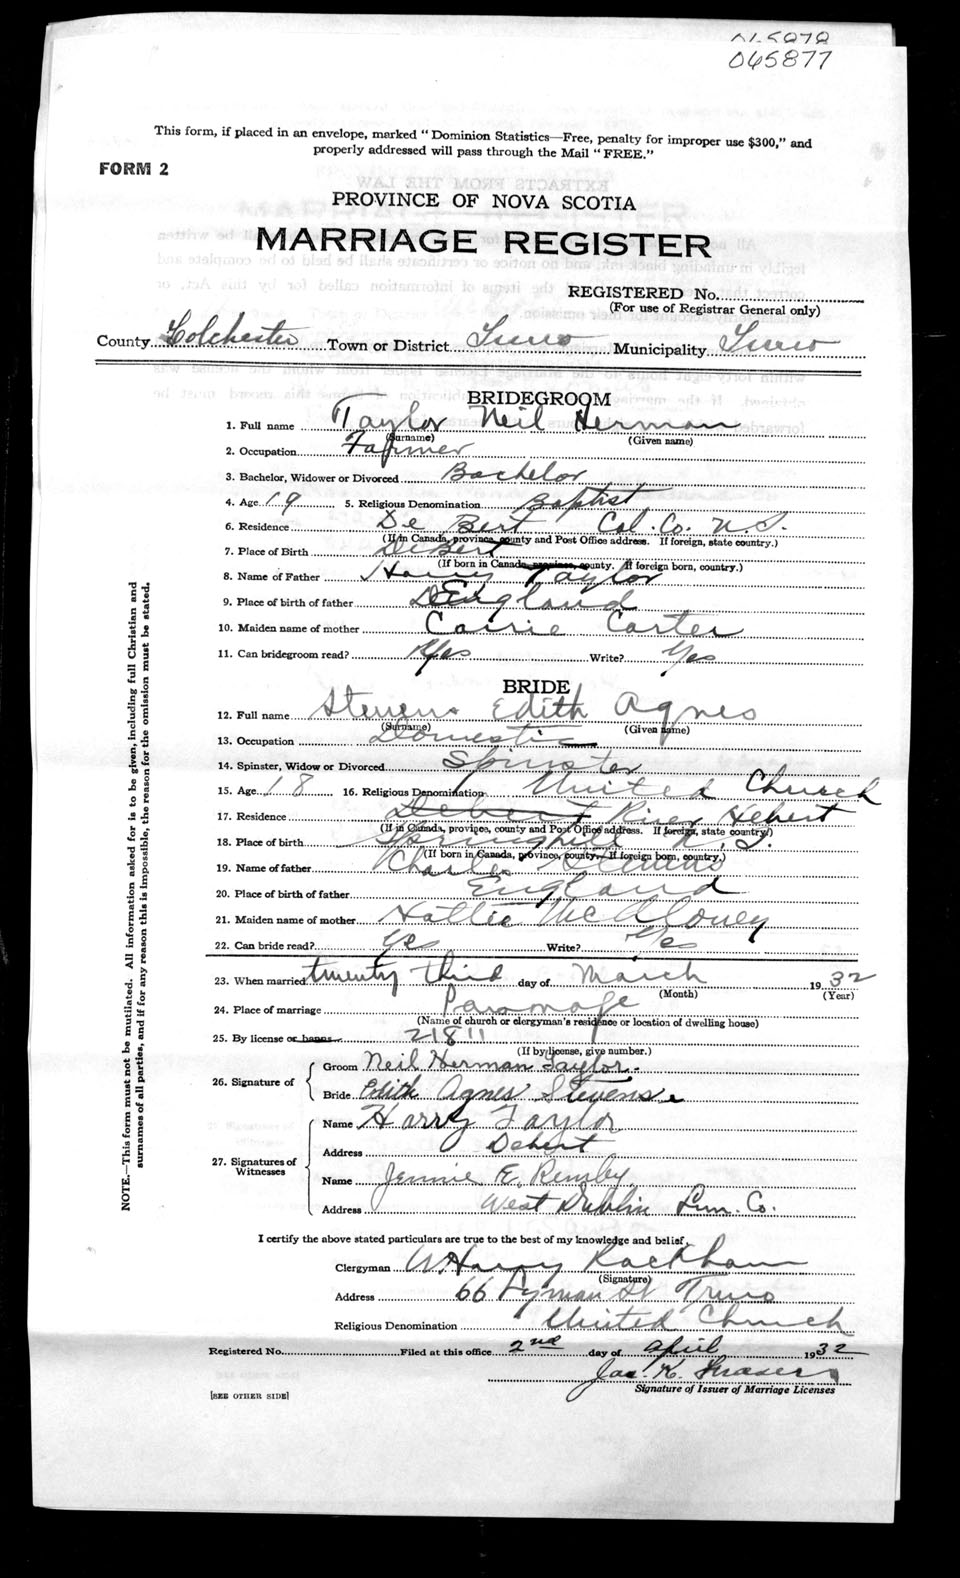 065877
This form, if placed in an envelope, marked "Dominion Statistics—Free, penalty for improper use $300," and
properly addressed will pass through the Mail "FREE."
FORM 2
PROVINCE OF NOVA SCOTIA
MARRIAGE REGISTER
REGISTERED No.
(For use of Registrar General only)
County Colchester Town or District Truro Municipality Truro
BRIDEGROOM
1. Full name Taylor Neil Herman
(Surname) (Given name)
2. Occupation Farmer
3. Bachelor, Widower or Divorced Bachelor
4. Age 19 5. Religious Denomination Baptist
6. Residence De Bert Col. Co. N.S.
(If in Canada, province, county and Post Office address. If foreign, state country.)
7. Place of Birth DeBert
(If born in Canada, province, county. If foreign born, country.)
8. Name of Father Harry Taylor
9. Place of birth of father England
10. Maiden name of mother Carrie Carter
11. Can bridegroom read? Yes Write? Yes
BRIDE
12. Full name Stevens Edith Agnes
(Surname) (Given name)
13. Occupation Domestic
14. Spinster, Widow or Divorced Spinster
15. Age 18 16. Religious Denomination United Church
17. Residence Debert River Hebert
(If in Canada, province, county and Post Office address. If foreign, state country)
18. Place of birth Springhill N.S.
(If born in Canada, province, county. If foreign born, country.)
19. Name of father Charles Stevens
20. Place of birth of father England
21. Maiden name of mother Hattie McAloney
22. Can bride read? Yes Write? Yes
23. When married twenty third day of March 1932
(Month) (Year)
24. Place of marriage Parsonage
(Name of church or clergyman's residence or location of dwelling house)
25. By license or banns 21811
(If by license, give number.)
26. Signature of
Groom Neil Herman Taylor
Bride Edith Agnes Stevens
27. Signatures of Witnesses
Name Harry Taylor
Address Debert
Name Jennie E.
Address West Dublin Lun. Co.
I certify the above stated particulars are true to the best of my knowledge and belief.
Clergyman W Harry Rackham
(Signature)
Address 66 Lyman St Truro
Religious Denomination United Church
Registered No. Filed at this office 2nd day of April 1932
Jas. K. Fraser
Signature of Issuer of Marriage Licenses
[SEE OTHER SIDE]
NOTE.—This form must not be mutilated. All information asked for is to be given, including full Christian and
surnames of all parties, and if for any reason this is impossible, the reason for the omission must be stated.